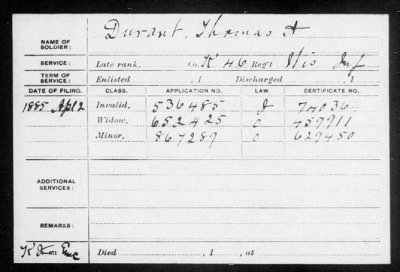 NAME OF SOLDIER: Durant, Thomas A
SERVICE: Late rank, Co. K 46 Regt Wis Inf
TERM OF SERVICE: Enlisted , 1 Discharged , 1
DATE OF FILING. CLASS. APPLICATION NO. LAW. CERTIFICATE NO.
1885 Apl 2 Invalid, 536485 J 740364
Widow, 652425 O 459911
Minor, 867289 O 629450
ADDITIONAL SERVICES:
REMARKS:
Died , 1 , at